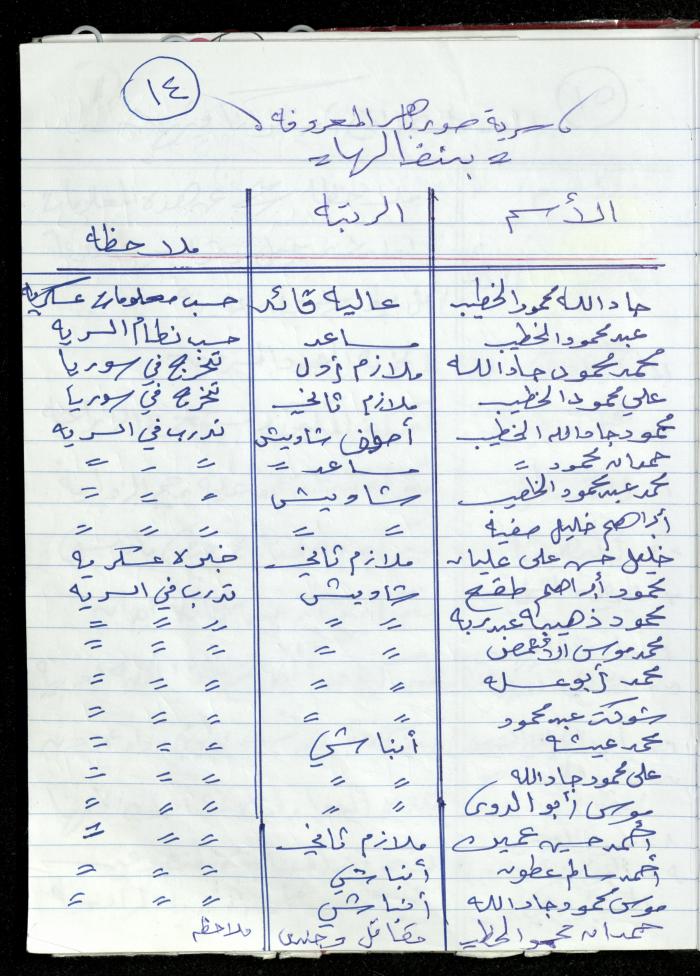 ١٤
سرية صور باهر المعروفه
= بنضالها =
الأسم الرتبه ملاحظه
جاد الله محمود الخطيب عاليه قائد حسب معلومات عسكريه
عبد محمود الخطيب مساعد حسب نظام السريه
محمد محمود جاد الله ملازم أول تخرج في سوريا
علي محمود الخطيب ملازم ثاني تخرج في سوريا
محمود جاد الله الخطيب شاويش تدرب في السريه
حمدان محمود = مساعد = = = =
محمد عبد محمود الخطيب شاويش = = =
أبراهيم خليل صفيه = = = = =
خليل حسن علي عليان ملازم ثاني خبره عسكريه
محمود أبراهيم طقع شاويش تدرب في السريه
محمود ذهيبه عبد ربه = = = = =
محمد موسى = = = = =
محمد أبو عسله = = = = =
شوكت عبد محمود = = = = =
محمد عيشه أنباشي = = =
علي محمود جاد الله = = = = =
موسى أبو = = = = =
أحمد حسين عميره ملازم ثاني = = =
أحمد سالم عطون أنباشي = = =
موسى محمود جاد الله أنباشي = = =
حمدان محمود الخطيب مقاتل وجندي ملاحظه